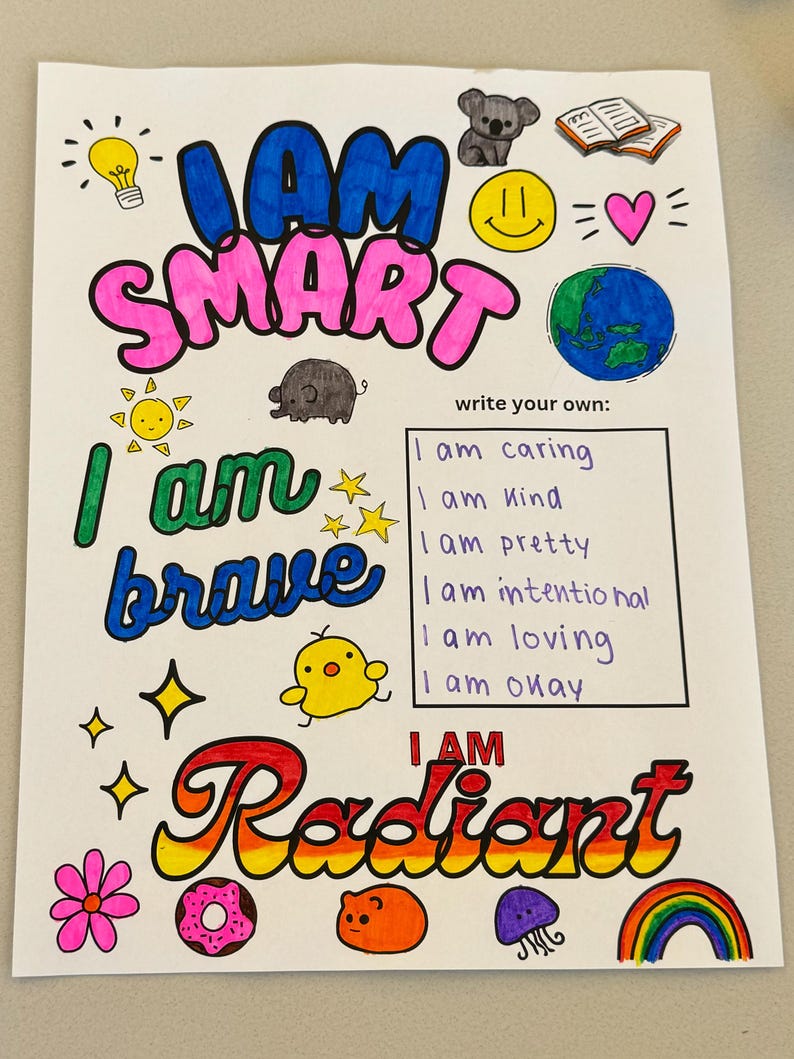 I AM
SMART
write your own:
I am caring
I am kind
I am pretty
I am intentional
I am loving
I am okay
I am
brave
I AM
Radiant